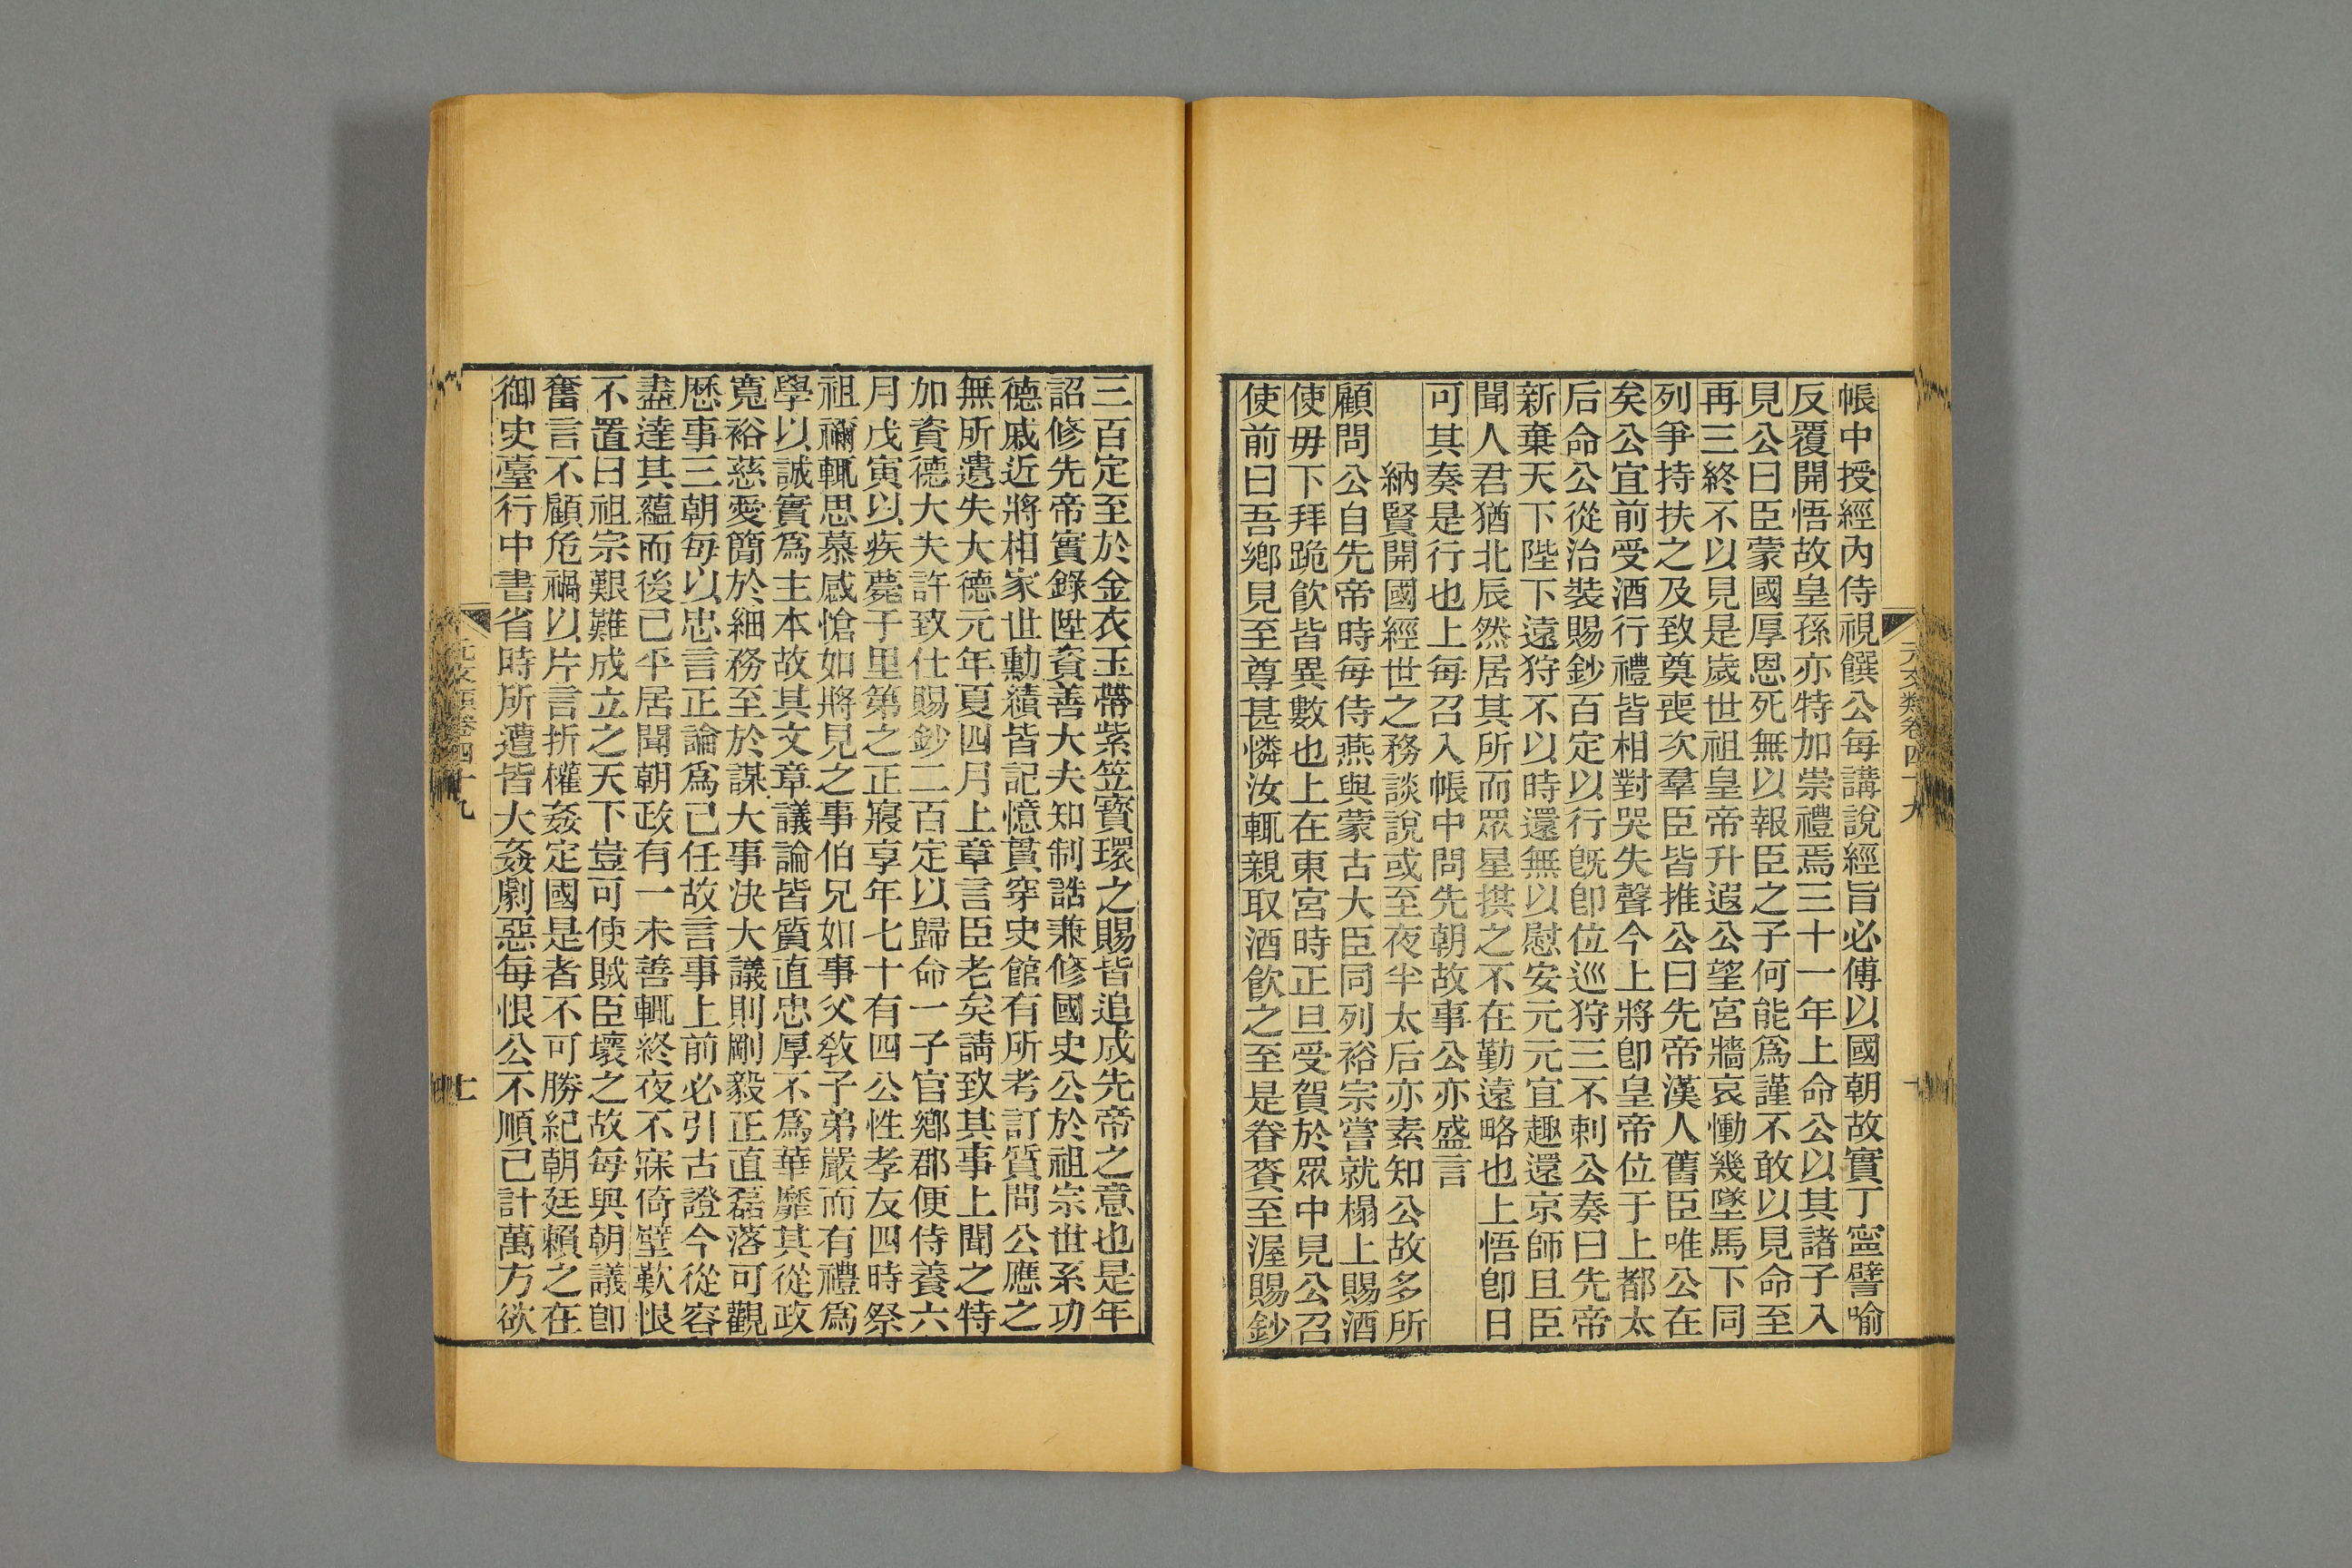 帳中授經內侍視饌公每講說經旨必傅以國朝故實丁寧譬喻
反覆開悟故皇孫亦特加崇禮焉三十一年上命公以其諸子入
見公曰臣蒙國厚恩死無以報臣之子何能爲謹不敢以見命至
再三終不以見是歲世祖皇帝升遐公望宮牆哀慟幾墜馬下同
列爭持扶之及致奠喪次羣臣皆推公曰先帝漢人舊臣唯公在
矣公宜前受酒行禮皆相對哭失聲今上將卽皇帝位于上都太
后命公從治裝賜鈔百定以行旣卽位巡狩三不剌公奏曰先帝
新棄天下陛下遠狩不以時還無以慰安元元宜趣還京師且臣
聞人君猶北辰然居其所而眾星拱之不在勤遠略也上悟卽日
可其奏是行也上每召入帳中問先朝故事公亦盛言
納賢開國經世之務談說或至夜半太后亦素知公故多所
顧問公自先帝時每侍燕與蒙古大臣同列裕宗嘗就榻上賜酒
使毋下拜跪飮皆異數也上在東宮時正旦受賀於眾中見公召
使前曰吾鄕見至尊甚憐汝輒親取酒飮之至是眷賚至渥賜鈔
元文類卷四十九
三百定至於金衣玉帶紫笠寶環之賜皆追成先帝之意也是年
詔修先帝實錄陞資善大夫知制誥兼修國史公於祖宗世系功
德戚近將相家世勳績皆記憶貫穿史館有所考訂質問公應之
無所遺失大德元年夏四月上章言臣老矣請致其事上聞之特
加資德大夫許致仕賜鈔二百定以歸命一子官鄕郡便侍養六
月戊寅以疾薨于里第之正寢享年七十有四公性孝友四時祭
祖禰輒思慕感愴如將見之事伯兄如事父敎子弟嚴而有禮爲
學以誠實爲主本故其文章議論皆質直忠厚不爲華靡其從政
寬裕慈愛簡於細務至於謀大事決大議則剛毅正直磊落可觀
歷事三朝每以忠言正論爲己任故言事上前必引古證今從容
盡達其蘊而後已平居聞朝政有一未善輒終夜不寐倚壁歎恨
不置曰祖宗艱難成立之天下豈可使賊臣壞之故每與朝議卽
奮言不顧危禍以片言折權姦定國是者不可勝紀朝廷賴之在
御史臺行中書省時所遭皆大姦劇惡每恨公不順己計萬方欲
元文類卷四十九